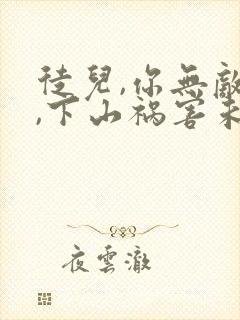 徒兒,你無敵
,下山祸害未
夜雲澈